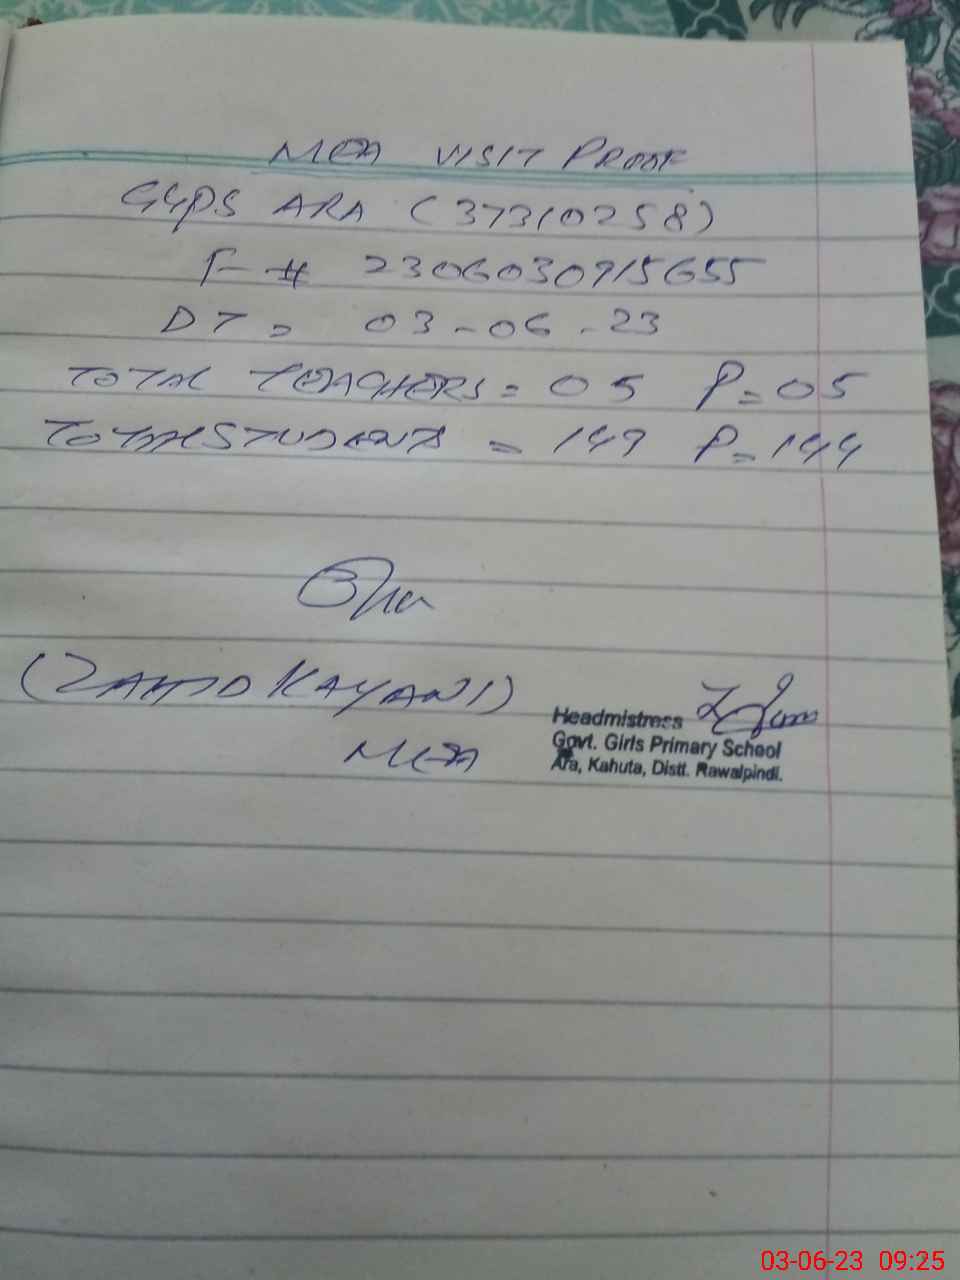 MEA VISIT PROOF
GGPS ARA (37310258)
F-# 2306030915655
DT = 03-06-23
TOTAL TEACHERS = 05 P=05
TOTAL STUDENTS = 149 P=144
(ZAHID KAYANI)
MEA
Headmistress
Govt. Girls Primary School
Ara, Kahuta, Distt. Rawalpindi.
03-06-23 09:25